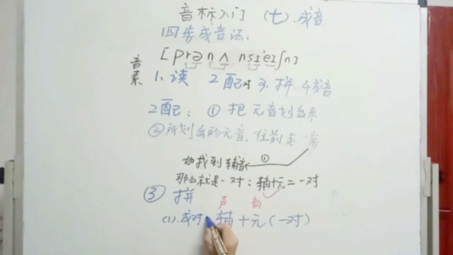 音标入门 (七).成音
四步成音法:
[prənʌnsieiʃn]
音素 1.读 2配对 3.拼 4成音
2配: ① 把元音划出来
②所划出的元音,往前走一步
如找到辅音 ①
那么就是一对:辅+元=一对
③ 拼
声 韵
(1).成对:辅+元(一对)